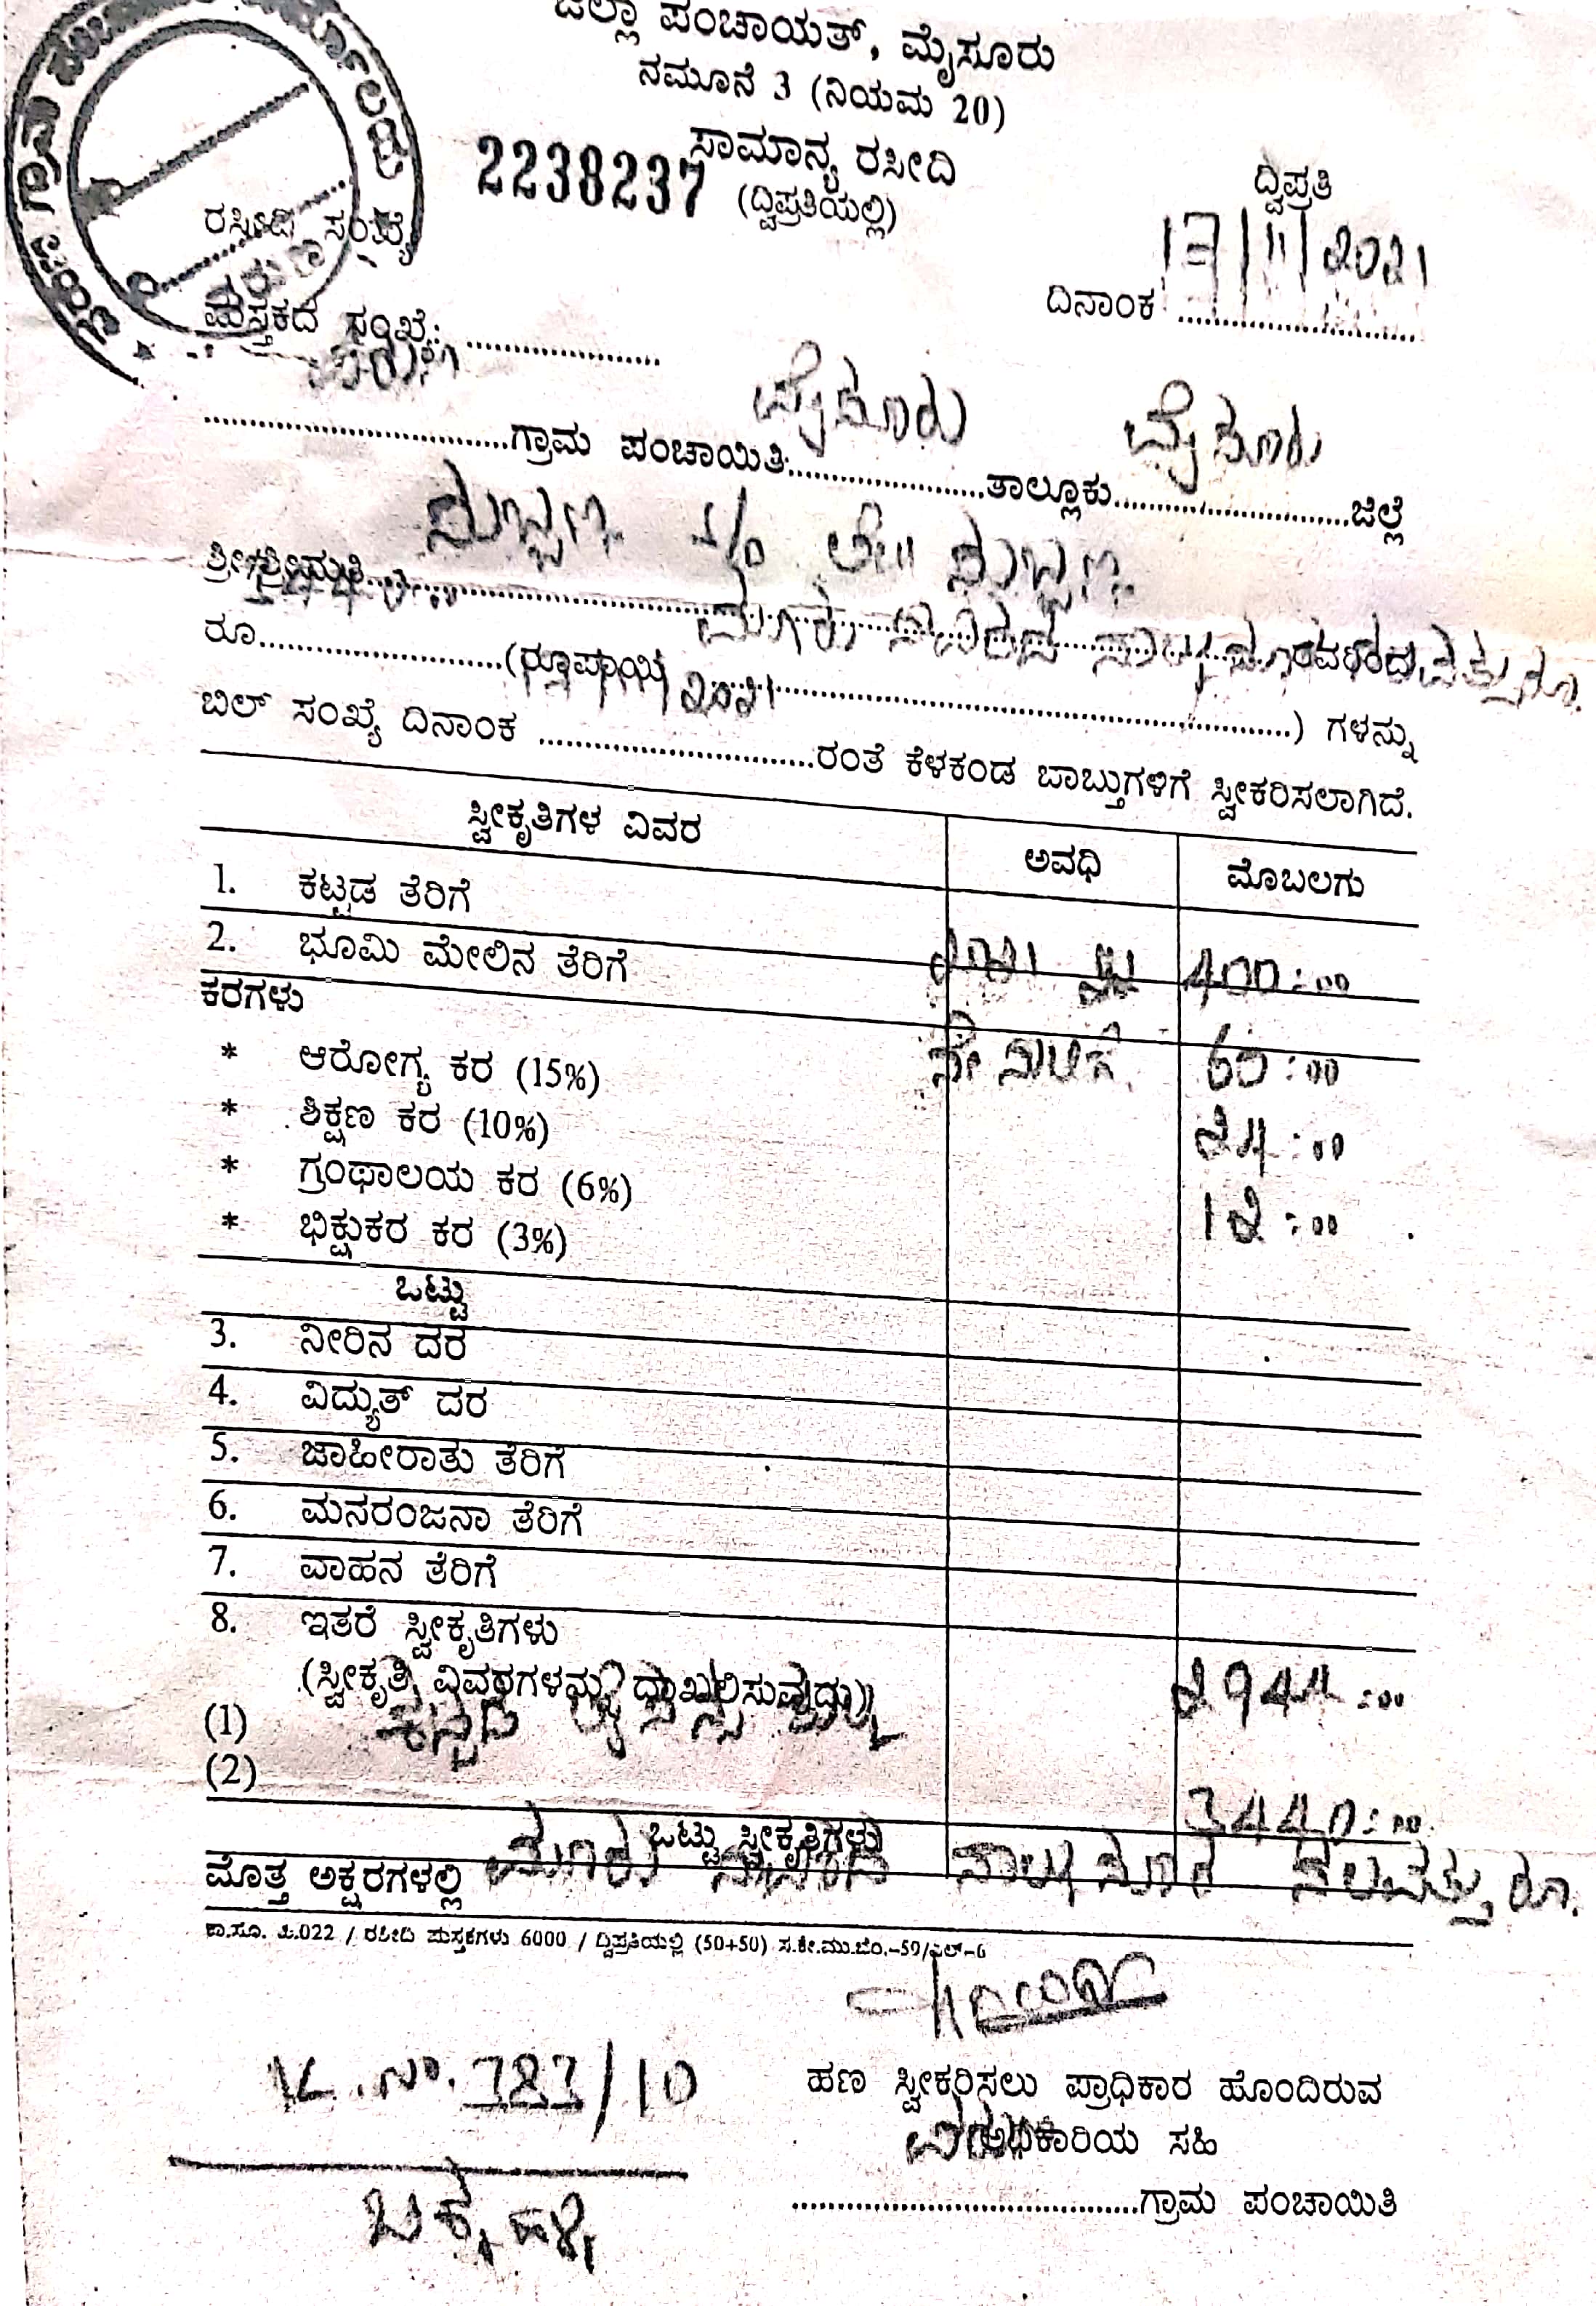 ಜಿಲ್ಲಾ ಪಂಚಾಯತ್, ಮೈಸೂರು
ನಮೂನೆ 3 (ನಿಯಮ 20)
ಸಾಮಾನ್ಯ ರಸೀದಿ
2238237 (ದ್ವಿಪ್ರತಿಯಲ್ಲಿ)
ದ್ವಿಪ್ರತಿ
ರಸೀದಿ ಸಂಖ್ಯೆ
ದಿನಾಂಕ 17/11/2021
ಪುಸ್ತಕದ ಸಂಖ್ಯೆ: ....................
ವರುಣ ಗ್ರಾಮ ಪಂಚಾಯಿತಿ ಮೈಸೂರು ತಾಲ್ಲೂಕು ಮೈಸೂರು ಜಿಲ್ಲೆ
ಶ್ರೀ/ಶ್ರೀಮತಿ ಸುಬ್ಬಣ್ಣ S/o ಲೇ॥ ಸುಬ್ಬಣ್ಣ ರವರಿಂದ
ರೂ. (ರೂಪಾಯಿ ಮೂರು ಸಾವಿರದ ನಾಲ್ಕು ನೂರ ನಲವತ್ತು ರೂ. ) ಗಳನ್ನು
ಬಿಲ್ ಸಂಖ್ಯೆ ದಿನಾಂಕ 2021 ರಂತೆ ಕೆಳಕಂಡ ಬಾಬ್ತುಗಳಿಗೆ ಸ್ವೀಕರಿಸಲಾಗಿದೆ.
ಸ್ವೀಕೃತಿಗಳ ವಿವರ ಅವಧಿ ಮೊಬಲಗು
1. ಕಟ್ಟಡ ತೆರಿಗೆ
2. ಭೂಮಿ ಮೇಲಿನ ತೆರಿಗೆ 400:00
ಕರಗಳು
* ಆರೋಗ್ಯ ಕರ (15%) ನೇ ಸಾಲಿಗೆ 60:00
* ಶಿಕ್ಷಣ ಕರ (10%) 24:00
* ಗ್ರಂಥಾಲಯ ಕರ (6%) 12:00
* ಭಿಕ್ಷುಕರ ಕರ (3%)
ಒಟ್ಟು
3. ನೀರಿನ ದರ
4. ವಿದ್ಯುತ್ ದರ
5. ಜಾಹೀರಾತು ತೆರಿಗೆ
6. ಮನರಂಜನಾ ತೆರಿಗೆ
7. ವಾಹನ ತೆರಿಗೆ
8. ಇತರೆ ಸ್ವೀಕೃತಿಗಳು
(ಸ್ವೀಕೃತಿ ವಿವರಗಳನ್ನು ದಾಖಲಿಸುವುದು) 2944:00
(1) ಕಟ್ಟಡ ಲೈಸೆನ್ಸ್
(2)
ಒಟ್ಟು ಸ್ವೀಕೃತಿಗಳು 3440:00
ಮೊತ್ತ ಅಕ್ಷರಗಳಲ್ಲಿ ಮೂರು ಸಾವಿರದ ನಾಲ್ಕು ನೂರ ನಲವತ್ತು ರೂ.
ಕಾ.ಸೂ. ಪಿ.022 / ರಸೀದಿ ಪುಸ್ತಕಗಳು 6000 / ದ್ವಿಪ್ರತಿಯಲ್ಲಿ (50+50) ಸ.ಕೇ.ಮು.ಬೆಂ.-59/ಎಲ್-6
K.ನಂ. 383/10
ಹಣ ಸ್ವೀಕರಿಸಲು ಪ್ರಾಧಿಕಾರ ಹೊಂದಿರುವ
ಅಧಿಕಾರಿಯ ಸಹಿ
ವರುಣ ಗ್ರಾಮ ಪಂಚಾಯಿತಿ